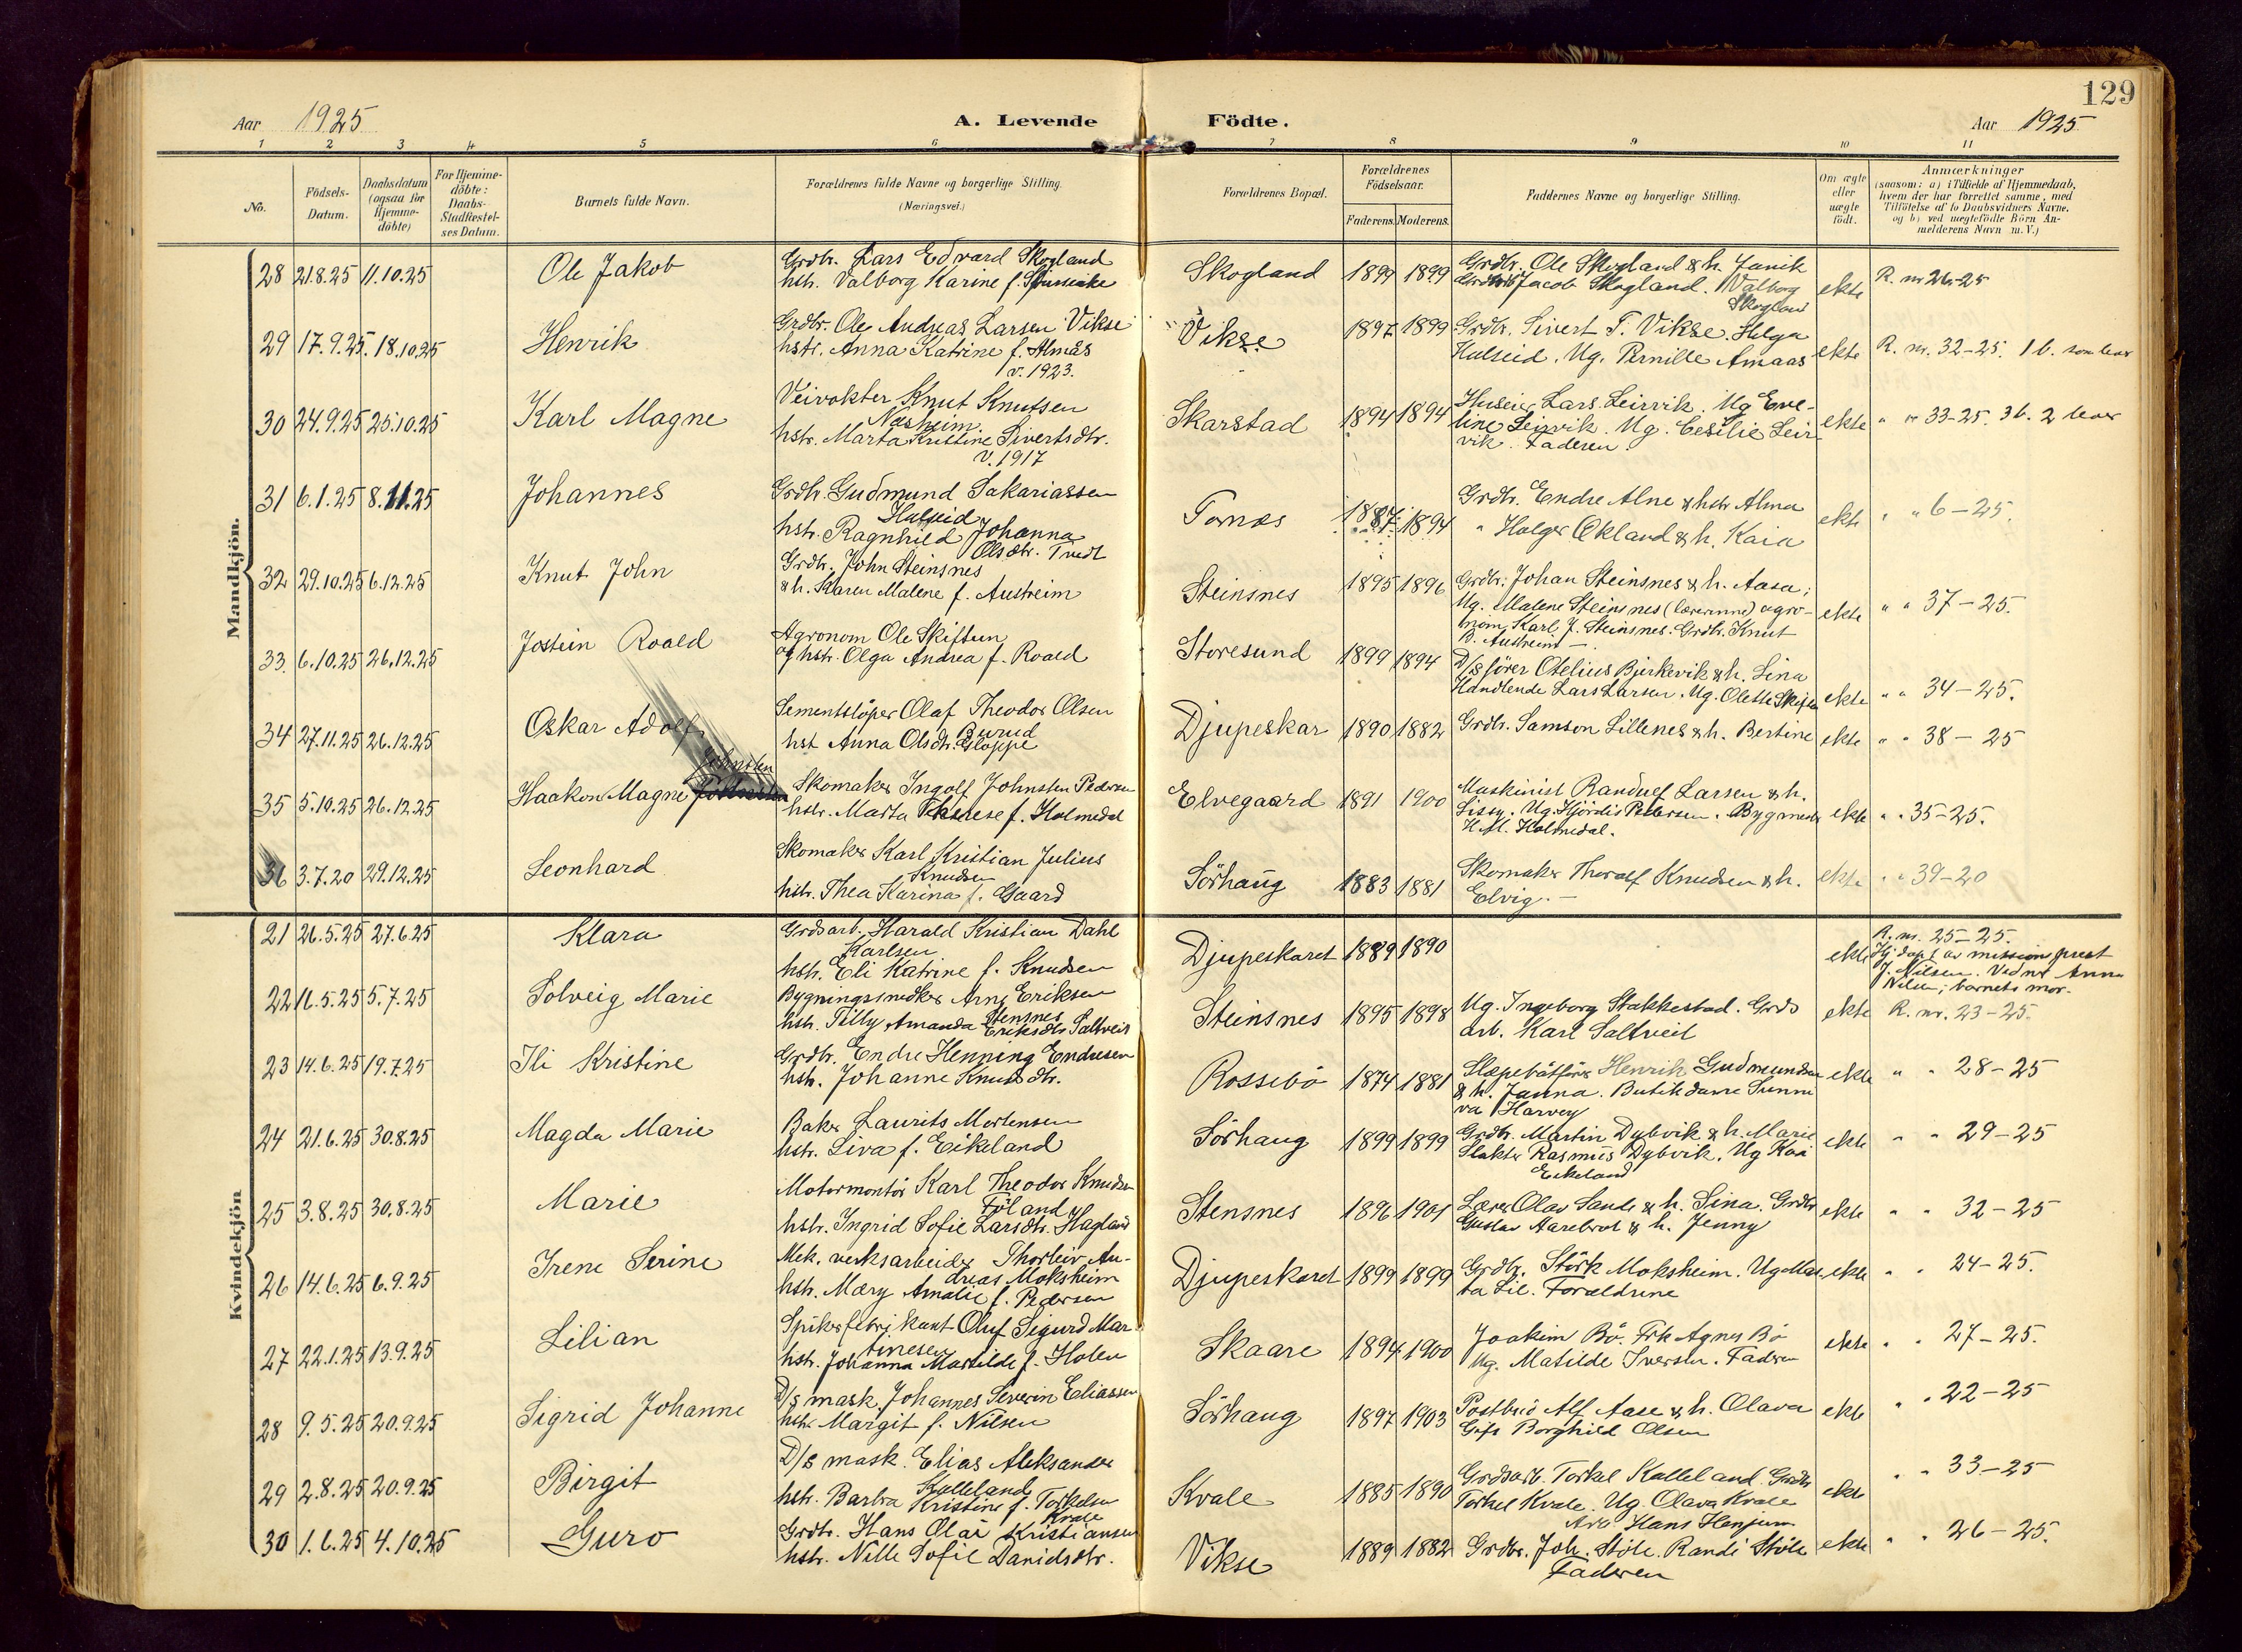 129
Aar 1925
A. Levende Födte.
Aar 1925
1 2 3 4 5 6 7 8 9 10 11
No.
Födsels-
Datum.
Daabsdatum
(ogsaa for
Hjemme-
döbte)
For Hjemme-
döbte:
Daabs-
Stadfæstel-
ses Datum.
Barnets fulde Navn.
Forældrenes fulde Navne og borgerlige Stilling.
(Næringsvei.)
Forældrenes Bopæl.
Forældrenes
Födselsaar.
Faderens. Moderens.
Faddernes Navne og borgerlige Stilling.
Om ægte
eller
uægte
födt.
Anmærkninger
(saasom: a) i Tilfælde af Hjemmedaab,
hvem der har forrettet samme, med
Tilföielse af to Daabsvidners Navne,
og b) ved uegtefödte Börn An-
melderens Navn m. V.)
Mandkjön.
28 21.8.25 11.10.25 Ole Jakob
Grdbr. Lars Edvard Skogland
hstr. Valborg Karine f.
Skogland 1899 1899
Grdbr. Ole Skogland & h. Janik
Jacob Skogland. Valborg
Skogland
ekte R. nr 26-25
29 17.9.25. 18.10.25 Henrik
Grdbr. Ole Andreas Larsen Vikse
hstr. Anna Katrine f. Almås
v. 1923.
Vikse 1897 1899
Grdbr. Sivert T. Vikse. Helga
Hulseid. Ug. Pernille Amaas
ekte R. nr. 32-25. 1 b. som lever
30 24.9.25 25.10.25 Karl Magne
Veivokter Knut Knutsen
Næsheim.
hstr. Marta Kristine Sivertsdtr.
v. 1917
Skarstad 1894 1894
Huseier Lars Leirvik. Ug Eve-
line Leirvik. Ug. Cesilie Leir-
vik. Faderen.
ekte " nr 33-25. 3 b. 2 lever
31 6.1.25 8.11.25 Johannes
Grdbr. Gudmund Sakariassen
Hulseid
hstr. Ragnhild Johanna
Olsdtr. Tvedt
Tornes 1887 1894
Grdbr. Endre Alne & hstr Alma
" Holger Økland & h. Kaia
ekte " " 6-25.
32 29.10.25 6.12.25 Knut John
Grdbr. John Steinsnes
& h. Karen Malene f. Austreim
Steinsnes 1895 1896
Grdbr. Johan Steinsnes & h. Aasa;
Ug. Malene Steinsnes (lærerinne) agro-
nom Karl J. Steinsnes. Grdbr. Knut
B. Austreim -
ekte " " 37-25.
33. 6.10.25 26.12.25 Jostein Roald
Agronom Ole Skiftun
og hstr. Olga Andrea f. Roald
Storesund 1899 1894
D/s förer Otelius Bjerkevik & h. Lina
Handlende Lars Larsen. Ug. Olette
ekte " " 34-25.
34 27.11.25 26.12.25 Oskar Adolf
Sementstöper Olaf Theodor Olsen
Burud
hst Anna Olsdtr. Gloppe
Djupeskar 1890 1882
Grdbr. Samson Lillenes & h. Bertine
ekte " " 38-25
35 5.10.25 26.12.25 Haakon Magne Johnsten
Skomaker Ingolf Johnsten Pedersen
hstr. Marta Therese f. Holmedal
Elvegaard 1891 1900
Maskinist Randulf Larsen & h.
Lissy. Ug. Hjördis Pettersen. Bygmester
H.M. Holmedal.
ekte " " 35-25.
36 3.7.20 29.12.25 Leonhard
Skomaker Karl Kristian Julius
Knudsen
hstr. Thea Karina f. Gaard
Sörhaug 1883 1881
Skomaker Thoralf Knudsen & h.
Elvig. -
ekte " " 39-20
Kvindekjön
21 26.5.25 27.6.25 Klara
Grdsarb. Harald Kristian Dahl
Karlsen
hstr. Eli Katrine f. Knudsen
Djupeskaret 1889 1890
ekte R. nr. 25-25.
Hj. döpt av missionsprest
J. Nilsen. Vidner Anna
Nilsen; barnets mor.
22 11.5.25 5.7.25 Solveig Marie
Bygningssnedker Arne Eriksen
Stensnes
hstr. Tilly Amanda Eriksdtr Saltveit
Steinsnes 1895 1898
Ug. Ingeborg Stakkestad. Grds
arb. Karl Saltveit
ekte R. nr. 23-25.
23 14.6.25 19.7.25 Ili Kristine
Grdbr. Endre Henning Endresen
hstr. Johanne Knutsdtr.
Rossebö 1874 1881
Slæpebåtförer Henrik Gudmundsen
& h. Janna. Butikdame Sunni
va Harvey
ekte " " 28-25
24 21.6.25 30.8.25 Magda Marie
Baker Laurits Mortensen
hstr. Siva f. Eikeland
Sörhaug 1899 1899
Grdbr. Martin Dybvik & h. Marie
Slakter Rasmus Dybvik. Ug Kaia
Eikeland
ekte " " 29-25
25 3.8.25 30.8.25 Marie
Motormontör Karl Theodor Knudsen
Föland
hstr. Ingrid Sofie Larsdtr. Hagland
Stensnes 1896 1901
Lærer Olav Sande & h. Sina. Grdbr
Gustav Aarebrot & h. Jenny
ekte " " 32-25
26 14.6.25 6.9.25 Irene Serine
Mek. verksarbeider Thorleiv An-
dreas Moksheim
hstr. Mary Amalie f. Pedersen
Djupeskaret 1899 1899
Grdbr. Störk Moksheim. Ug Mar-
ta Lie. Forældrene
ekte " " 24-25.
27 22.1.25 13.9.25 Lilian
Spikerfabrikant Oluf Sigurd Mar
tinesen
hstr. Johanna Martilde f. Holen
Skaare 1894 1900
Joakim Bö. Frk Agnes Bö
Ug. Matilde Iversen. Faderen
ekte " " 27-25.
28 9.5.25 20.9.25 Sigrid Johanne
D/s mask. Johannes Severin Eliassen
hstr Margit f. Nilsen
Sörhaug 1897 1903
Postbud Alf Aase & h. Olava
Gift Borghild Olsen
ekte " " 22-25
29 2.8.25 20.9.25 Birgit
D/s mask. Elias Aleksander
Kalleland
hstr. Barbra Kristine f. Torkelsen
Kvale
Kvale 1885 1890
Grdsarb. Torkel Kalleland. Grdbr
Torkel Kvale. Ug. Olava Kvale
Arb Hans Henjum
ekte " " 33-25
30 1.6.25 4.10.25 Guro
Grdbr. Hans Olai Kristiansen
hstr. Nille Sofie Danidsdtr.
Vikse 1889 1882
Grdbr. Joh. Stöle. Randi Stöle
Faderen
ekte " " 26-25.